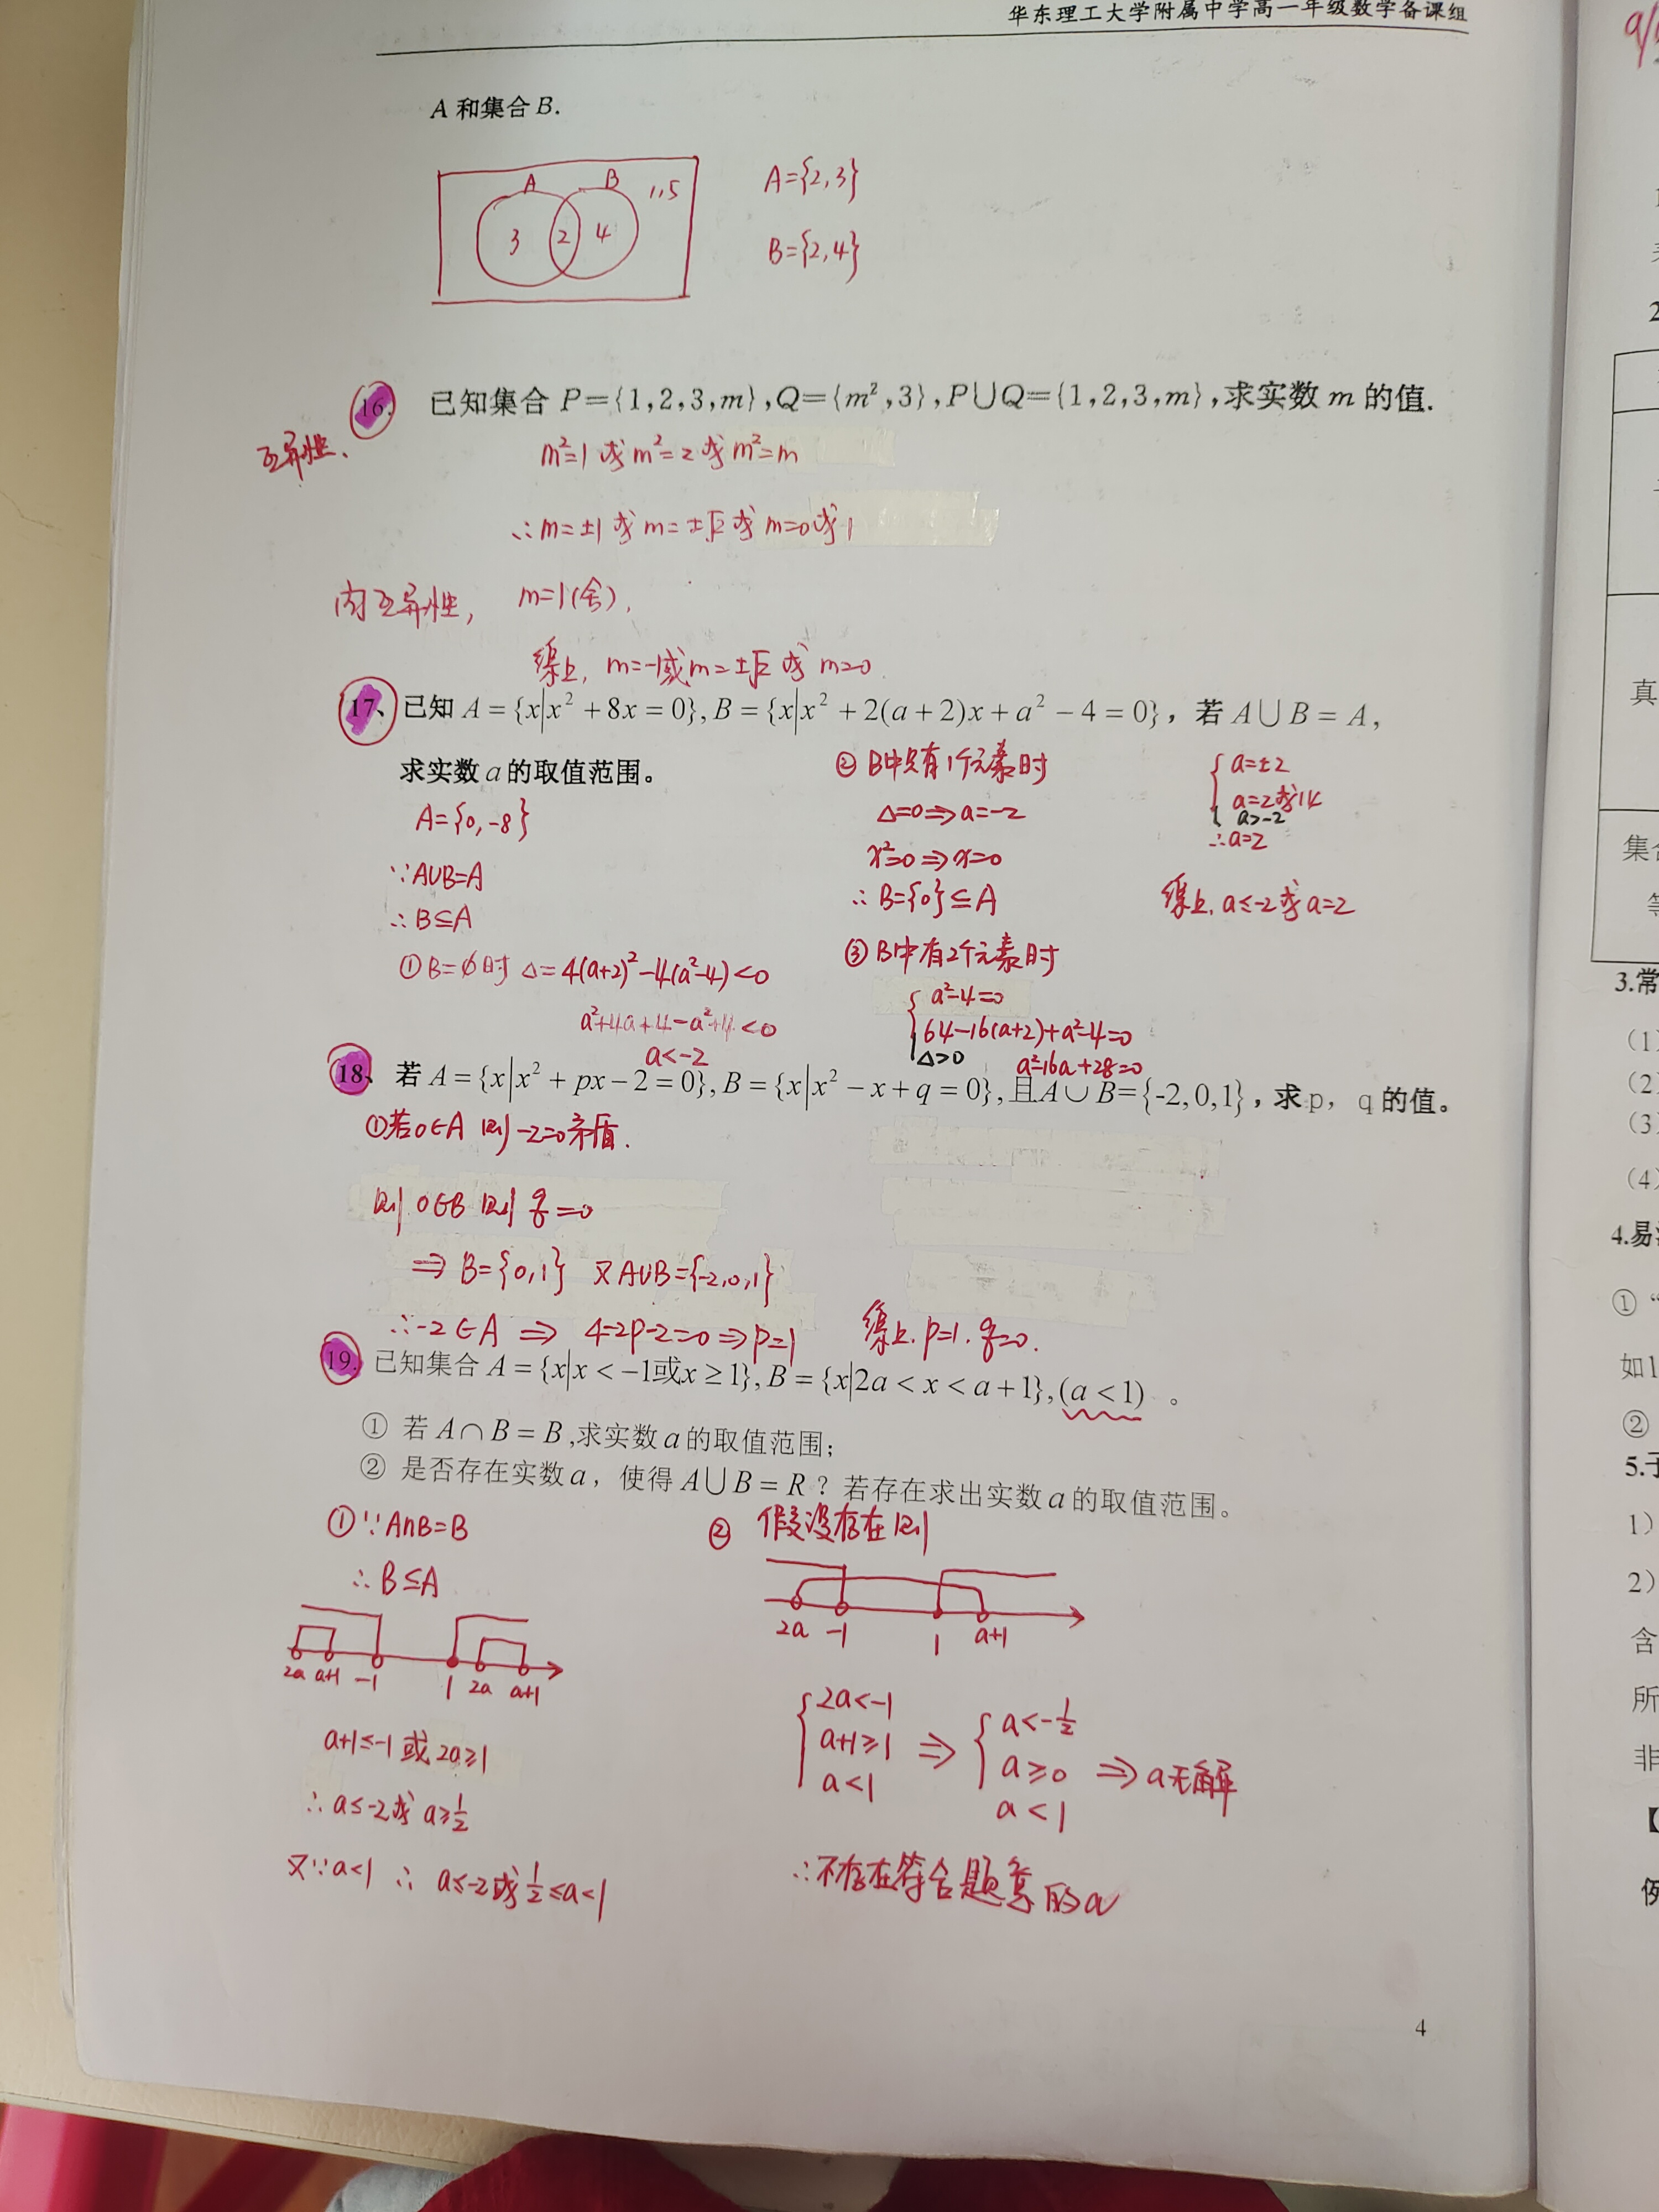 华东理工大学附属中学高一年级数学备课组
A 和集合 B.
A B 1,5
3 2 4
A={2,3}
B={2,4}
16. 已知集合 P={1,2,3,m},Q={m²,3},P∪Q={1,2,3,m},求实数 m 的值.
互异性、
m²=1 或 m²=2 或 m²=m
∴m=±1 或 m=±√2 或 m=0或1
由互异性, m=1(舍),
综上, m=-1或m=±√2 或 m=0.
17、已知 A={x|x²+8x=0},B={x|x²+2(a+2)x+a²-4=0}，若 A∪B=A,
求实数a的取值范围。
A={0,-8}
∵A∪B=A
∴B⊆A
①B=∅时 Δ=4(a+2)²-4(a²-4)<0
a²+4a+4-a²+4<0
a<-2
②B中只有1个元素时
Δ=0⇒a=-2
x²=0⇒x=0
∴B={0}⊆A
③B中有2个元素时
a²-4=0
64-16(a+2)+a²-4=0
Δ>0 a²-16a+28=0
a=±2
a=2或14
a>-2
∴a=2
综上, a≤-2或a=2
18、若 A={x|x²+px-2=0},B={x|x²-x+q=0},且A∪B={-2,0,1}，求p，q的值。
①若0∈A 则-2=0矛盾.
则 0∈B 则 q=0
⇒ B={0,1} 又A∪B={-2,0,1}
∴-2∈A ⇒ 4-2p-2=0⇒p=1
综上. p=1. q=0.
19. 已知集合 A={x|x<-1或x≥1},B={x|2a<x<a+1},(a<1) 。
① 若 A∩B=B,求实数a的取值范围;
② 是否存在实数a，使得 A∪B=R？若存在求出实数a的取值范围。
①∵A∩B=B
∴B⊆A
2a a+1 -1 1 2a a+1
a+1≤-1 或 2a≥1
∴a≤-2或 a≥1/2
又∵a<1 ∴ a≤-2或1/2≤a<1
② 假设存在则
2a -1 1 a+1
2a<-1
a+1≥1
a<1
⇒
a<-1/2
a≥0
a<1
⇒a无解
∴不存在符合题意的a
4
2
真
集合
等
3.常
(1)
(2)
(3)
(4)
4.易
① “
如1
②
5.子
1）
2）
含
所
非
【
例